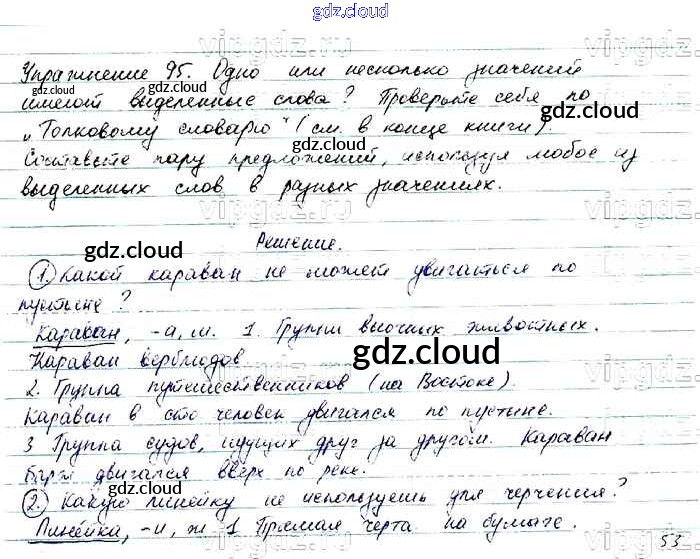 gdz.cloud
Упражнение 95. Одно или несколько значений
имеют выделенные слова? Проверьте себя по
„Толковому словарю" (см. в конце книги).
gdz.cloud
Составьте пару предложений, используя любое из
выделенных слов в разных значениях.
Решение.
gdz.cloud
1. Какой караван не может двигаться по
пустыне?
Караван, -а, м. 1. Группа вьючных животных.
Караван верблюдов.
gdz.cloud
2. Группа путешественников (на Востоке).
Караван в сто человек двигался по пустыне.
3 Группа судов, идущих друг за другом. Караван
барж двигался вверх по реке.
gdz.cloud
2. Какую линейку не используешь для черчения?
Линейка, -и, ж 1 Прямая черта на бумаге.
53
vipgdz.ru